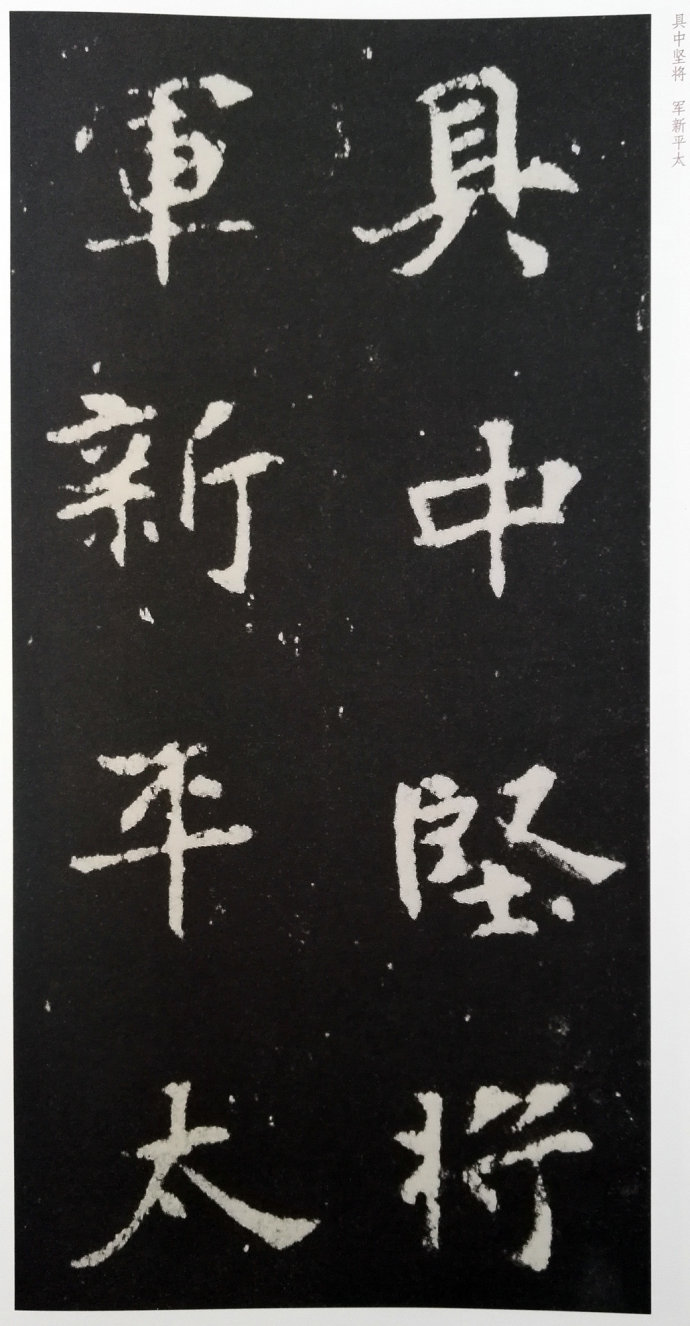 具中堅将
軍新平太
具中坚将 军新平太